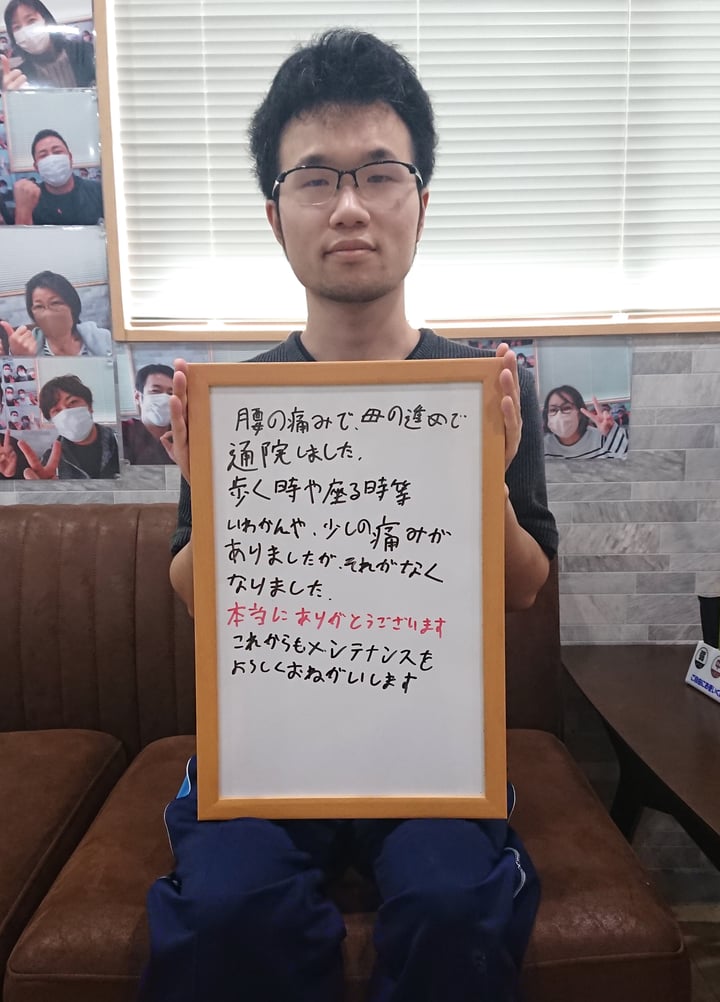 腰の痛みで、母の進めで
通院しました。
歩く時や座る時等
いわかんや、少しの痛みが
ありましたが、それがなく
なりました。
本当にありがとうございます
これからもメンテナンスを
よろしくおねがいします
ご自由にお使いく